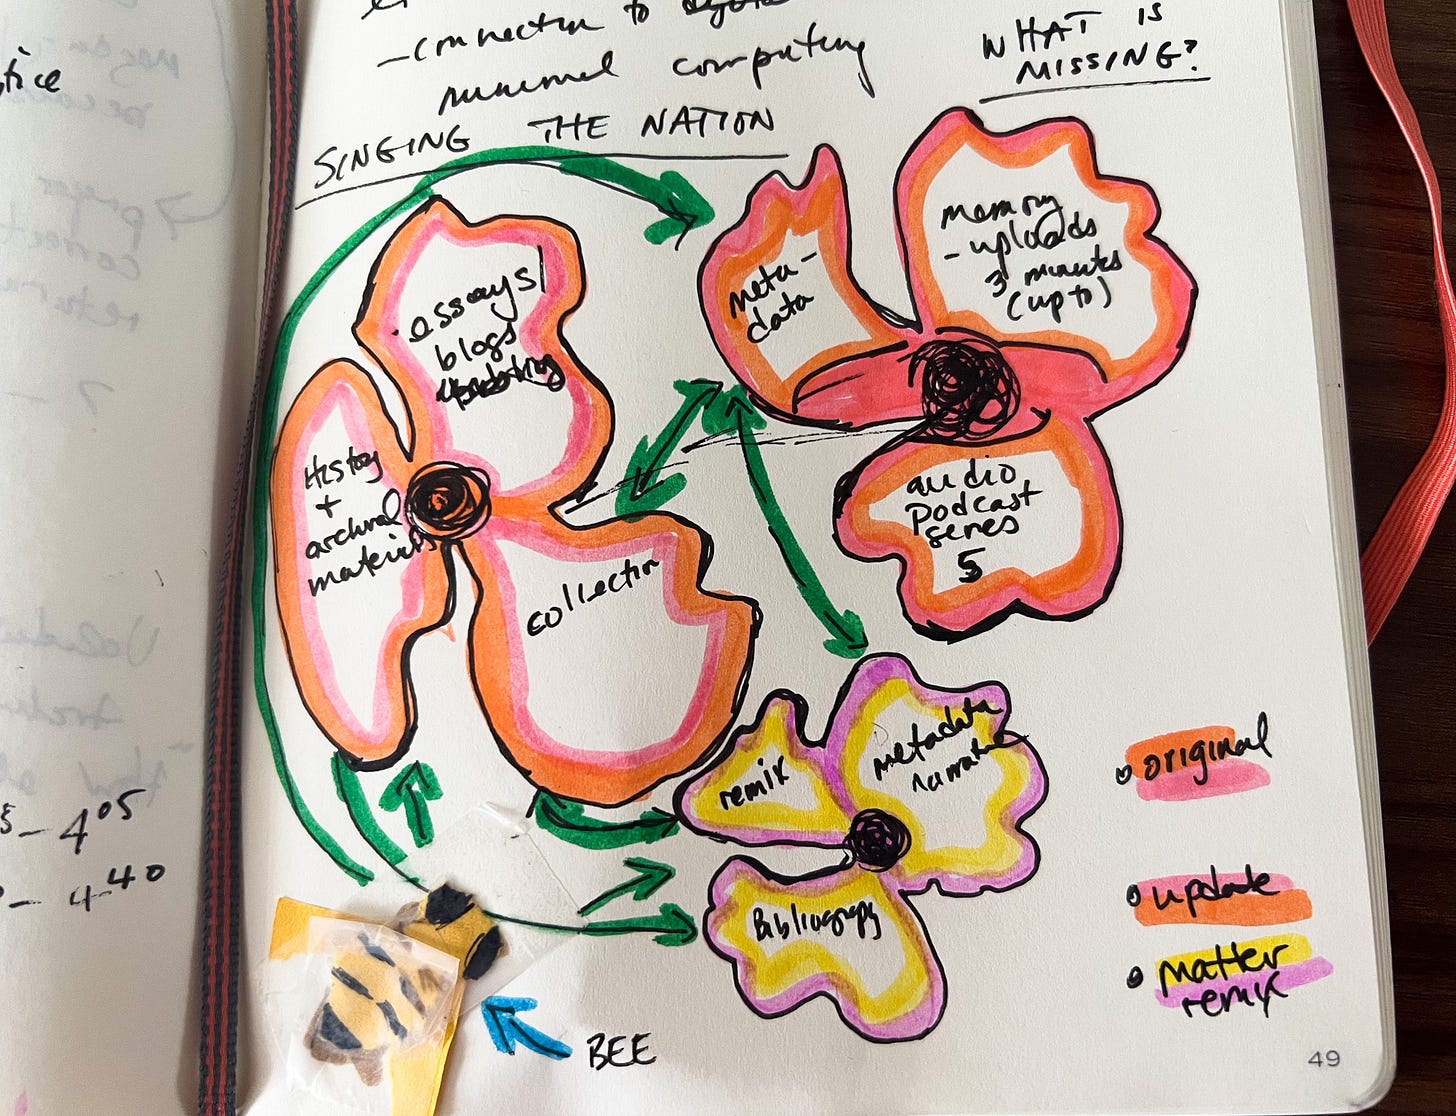 - connection to
minimal computing
WHAT IS
MISSING?
SINGING THE NATION
essays/
blogs
History
+
archival
materials
collection
meta-
data
memory
- uploads
3 minutes
(up to)
audio
podcast
series
5
remix
metadata
Bibliography
original
update
matter
remix
BEE
49
tice
- 4 05
- 4 40